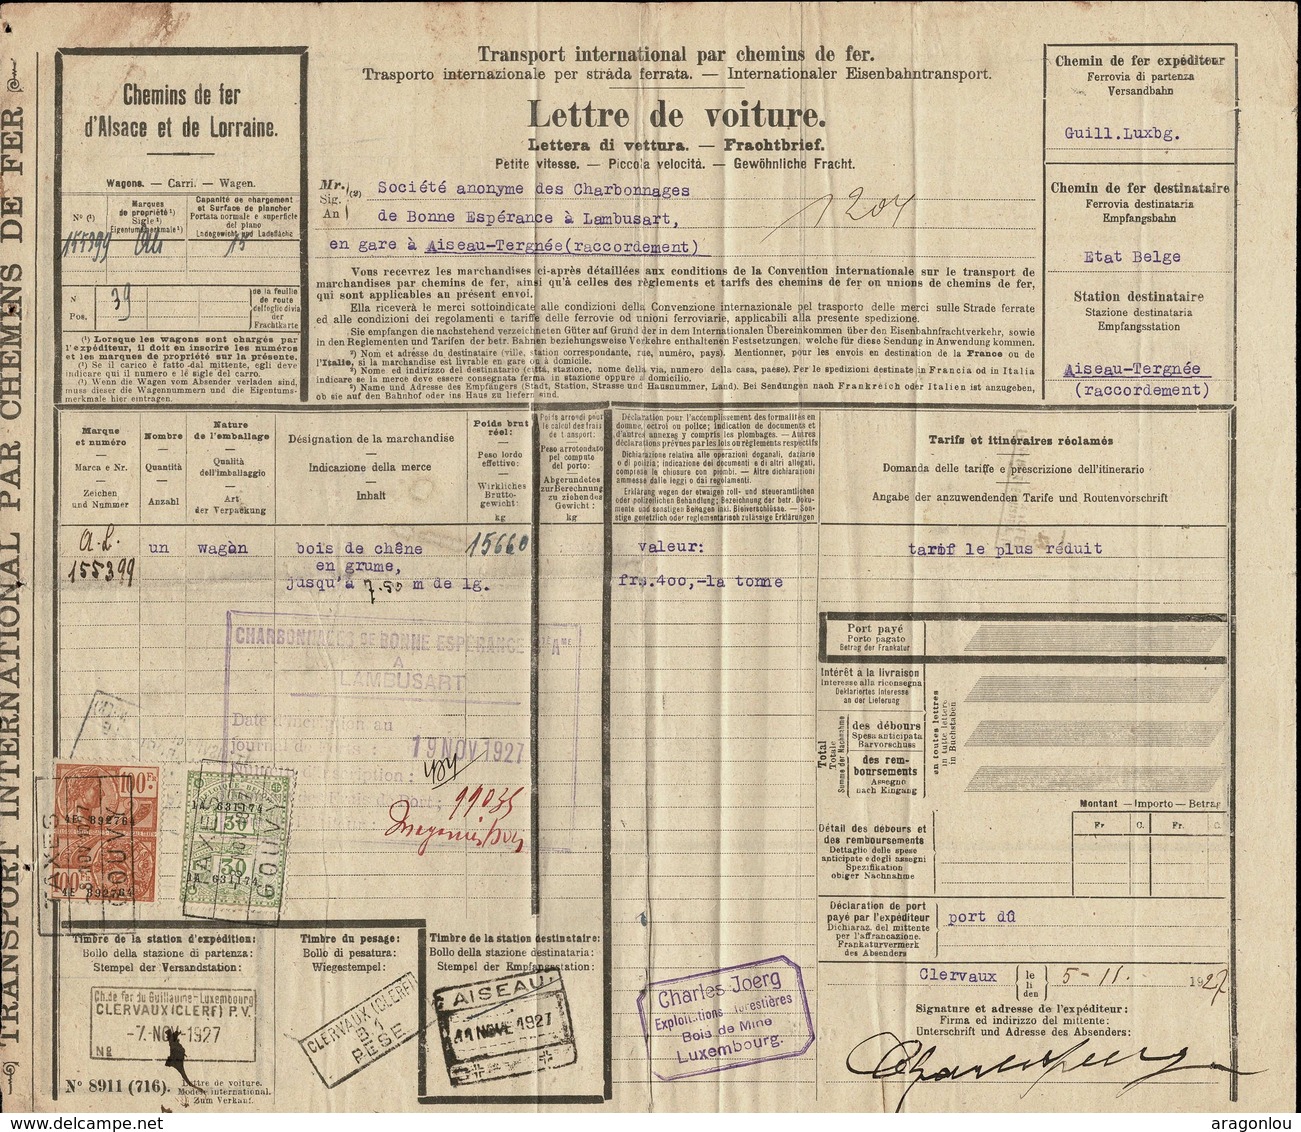 TRANSPORT INTERNATIONAL PAR CHEMINS DE FER
Chemins de fer
d'Alsace et de Lorraine.
Wagons. — Carri. — Wagen.
No (¹)
Marques
de propriété¹)
Sigle¹)
Eigentumsmerkmale¹)
Capacité de chargement
et Surface de plancher
Portata normale e superficie
del piano
Ladegewicht und Ladefläche
155399
15
N
Pos.
39
de la feuille
de route
del foglio divia
der
Frachtkarte
(¹) Lorsque les wagons sont chargés par
l'expéditeur, il doit en inscrire les numéros
et les marques de propriété sur la présente.
(¹) Se il carico è fatto dal mittente, egli deve
indicare qui il numero e le sigle del carro.
(¹) Wenn die Wagen vom Absender verladen sind,
muss dieser die Wagennummern und die Eigentums-
merkmale hier eintragen.
Transport international par chemins de fer.
Trasporto internazionale per stràda ferrata. — Internationaler Eisenbahntransport.
Lettre de voiture.
Lettera di vettura. — Frachtbrief.
Petite vitesse. — Piccola velocità. — Gewöhnliche Fracht.
Mr.
Sig.
An
(²)
Société anonyme des Charbonnages
de Bonne Espérance à Lambusart,
en gare à Aiseau-Tergnée(raccordement)
1204
Vous recevrez les marchandises ci-après détaillées aux conditions de la Convention internationale sur le transport de
marchandises par chemins de fer, ainsi qu'à celles des règlements et tarifs des chemins de fer ou unions de chemins de fer,
qui sont applicables au présent envoi.
Ella riceverà le merci sottoindicate alle condizioni della Convenzione internazionale pel trasporto delle merci sulle Strade ferrate
ed alle condizioni dei regolamenti e tariffe delle ferrovie od unioni ferroviarie, applicabili alla presente spedizione.
Sie empfangen die nachstehend verzeichneten Güter auf Grund der in dem Internationalen Übereinkommen über den Eisenbahnfrachtverkehr, sowie
in den Reglementen und Tarifen der betr. Bahnen beziehungsweise Verkehre enthaltenen Festsetzungen, welche für diese Sendung in Anwendung kommen.
²) Nom et adresse du destinataire (ville, station correspondante, rue, numéro, pays). Mentionner, pour les envois en destination de la France ou de
l'Italie, si la marchandise est livrable en gare ou à domicile.
²) Nome ed indirizzo del destinatario (città, stazione, nome della via, numero della casa, paese). Per le spedizioni destinate in Francia od in Italia
indicare se la merce deve essere consegnata ferma in stazione oppure a domicilio.
²) Name und Adresse des Empfängers (Stadt, Station, Strasse und Hausnummer, Land). Bei Sendungen nach Frankreich oder Italien ist anzugeben,
ob sie auf den Bahnhof oder ins Haus zu liefern sind.
Chemin de fer expéditeur
Ferrovia di partenza
Versandbahn
Guill.Luxbg.
Chemin de fer destinataire
Ferrovia destinataria
Empfangsbahn
Etat Belge
Station destinataire
Stazione destinataria
Empfangsstation
Aiseau-Tergnée
(raccordement)
Marque
et numéro
Marca e Nr.
Zeichen
und Nummer
Nombre
Quantità
Anzahl
Nature
de l'emballage
Qualità
dell'imballaggio
Art
der Verpackung
Désignation de la marchandise
Indicazione della merce
Inhalt
Poids brut
réel:
Peso lordo
effettivo:
Wirkliches
Brutto-
gewicht:
kg
Poids arrondi pour
le calcul des frais
de transport:
Peso arrotondato
pel compute
del porto:
Abgerundetes
zur Berechnung
zu ziehendes
Gewicht:
kg
Déclaration pour l'accomplissement des formalités en
domne, octroi ou police; indication de documents et
d'autres annexes y compris les plombages. — Autres
déclarations prévues par les lois ou règlements respectifs
Dichiarazione relative alle operazioni doganali, daziarie
o di polizia; indicazione dei documenti e di altri allegati,
comprese le chiusure con piombi. — Altre dichiarazioni
ammesse dalle leggi o dai regolamenti.
Erklärung wegen der etwaigen zoll- und steueramtlichen
oder polizeilichen Behandlung; Bezeichnung der betr. Doku-
mente und sonstigen Beilagen inkl. Bleiverschlüsse. — Son-
stige gesetzlich oder reglementarisch zulässige Erklärungen
Tarifs et itinéraires réclamés
Domanda delle tariffe e prescrizione dell'itinerario
Angabe der anzuwendenden Tarife und Routenvorschrift
A.L.
155399
un
wagòn
bois de chêne
en grume,
jusqu'à 7.50 m de lg.
15660
valeur:
frs.400,-la tonne
tarif le plus réduit
CHARBONNAGES DE BONNE ESPERANCE Sté Ame
A
LAMBUSART
Date d'inscription au
19 NOV 1927
99035
Port payé
Porto pagato
Betrag der Frankatur
Intérêt à la livraison
Interesse alla riconsegna
Deklariertes Interesse
an der Lieferung
Total
Totale
Summe der Nachnahme
des débours
Spesa anticipata
Barvorschuss
des rem-
boursements
Assegno
nach Eingang
en toutes lettres
in tutte lettere
in Buchstaben
Montant — Importo — Betrag
Fr C. Fr. C.
Détail des débours et
des remboursements
Dettaglio delle spese
anticipate e degli assegni
Spezifikation
obiger Nachnahme
Déclaration de port
payé par l'expéditeur
Dichiaraz. del mittente
per l'affrancazione.
Frankaturvermerk
des Absenders
port dû
Clervaux
le
li
den
5-11. 1927
Signature et adresse de l'expéditeur:
Firma ed indirizzo del mittente:
Unterschrift und Adresse des Absenders:
100 Fr
4E 892764
100 Fr
4E 892764
TAXES
GOUVY
BELGIQUE
1A 631174
30
30
1A 631174
TAXES
GOUVY
Timbre de la station d'expédition:
Bollo della stazione di partenza:
Stempel der Versandstation:
Ch. de fer du Guillaume-Luxembourg
CLERVAUX(CLERF) P.V.
-7.NOV.1927
No
Timbre du pesage:
Bollo di pesatura:
Wiegestempel:
CLERVAUX (CLERF)
B 1
PESE
Timbre de la station destinataire:
Bollo della stazione destinataria:
Stempel der Empfangsstation:
AISEAU
11 NOVE 1927
Charles Joerg
Exploitations forestières
Bois de Mine
Luxembourg.
No 8911 (716).
Lettre de voiture.
Modèle international.
Zum Verkauf.
delcampe.net
aragonlou